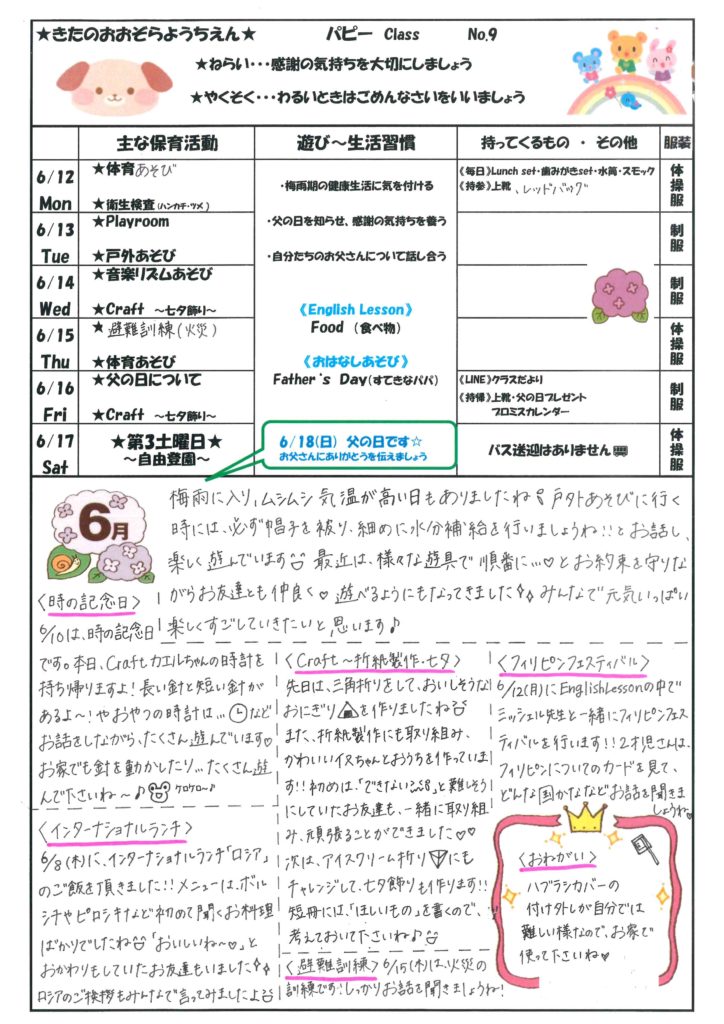 ★きたのおおぞらようちえん★ パピー Class No.9
★ねらい・・・感謝の気持ちを大切にしましょう
★やくそく・・・わるいときはごめんなさいをいいましょう
主な保育活動 遊び～生活習慣 持ってくるもの ・ その他 服装
6/12 Mon
★体育あそび
★衛生検査(ハンカチ・ツメ)
6/13 Tue
★Playroom
★戸外あそび
6/14 Wed
★音楽リズムあそび
★Craft ～七夕飾り～
6/15 Thu
★避難訓練(火災)
★体育あそび
6/16 Fri
★父の日について
★Craft ～七夕飾り～
6/17 Sat
★第3土曜日★
～自由登園～
・梅雨期の健康生活に気を付ける
・父の日を知らせ、感謝の気持ちを養う
・自分たちのお父さんについて話し合う
《English Lesson》
Food (食べ物)
《おはなしあそび》
Father's Day(すてきなパパ)
6/18(日) 父の日です☆
お父さんにありがとうを伝えましょう
《毎日》Lunch set・歯みがきset・水筒・スモック
《持参》上靴、レッドバッグ
《LINE》クラスだより
《持帰》上靴・父の日プレゼント
プロミスカレンダー
バス送迎はありません
体操服
制服
制服
体操服
制服
体操服
6月
梅雨に入り、ムシムシ気温が高い日もありましたね！戸外あそびに行く
時には、必ず帽子を被り、細めに水分補給を行いましょうね!!とお話し、
楽しく遊んでいます 最近は、様々な遊具で順番に…♡とお約束を守りな
がらお友達とも仲良く♡遊べるようにもなってきました みんなで元気いっぱい
楽しくすごしていきたいと思います♪
〈時の記念日〉
6/10は、時の記念日
です。本日、Craftカエルちゃんの時計を
持ち帰りますよ!長い針と短い針が
あるよ～!やおやつの時計は…など
お話をしながら、たくさん遊んでいます♡
お家でも針を動かしたり…たくさん遊
んで下さいね～♪ ケロケロ～♪
〈インターナショナルランチ〉
6/8(木)に、インターナショナルランチ「ロシア」
のご飯を頂きました!!メニューは、ボル
シチやピロシキなど初めて聞くお料理
ばかりでしたね「おいしいね～♡」と
おかわりもしていたお友達もいました
ロシアのご挨拶もみんなで言ってみましたよ
〈Craft～折紙製作・七夕〉
先日は、三角折りをして、おいしそうな
おにぎりを作りましたね
また、折紙製作にも取り組み、
かわいいイヌちゃんとおうちを作っていま
す!!初めは、「できない」と難しそう
にしていたお友達も、一緒に取り組
み、頑張ることができました♡♡
次は、アイスクリーム折りにも
チャレンジして、七夕飾りも作ります!!
短冊には、「ほしいもの」を書くので、
考えておいて下さいね♪
〈避難訓練〉6/15(木)は、火災の
訓練です!しっかりお話を聞きましょうね!
〈フィリピンフェスティバル〉
6/12(月)にEnglishLessonの中で
ミッシェル先生と一緒にフィリピンフェス
ティバルを行います!!2才児さんは、
フィリピンについてのカードを見て、
どんな国かななどお話を聞きま
しょうね♡
〈おねがい〉
ハブラシカバーの
付け外しが自分では
難しい様なので、お家で
使って下さいね♡